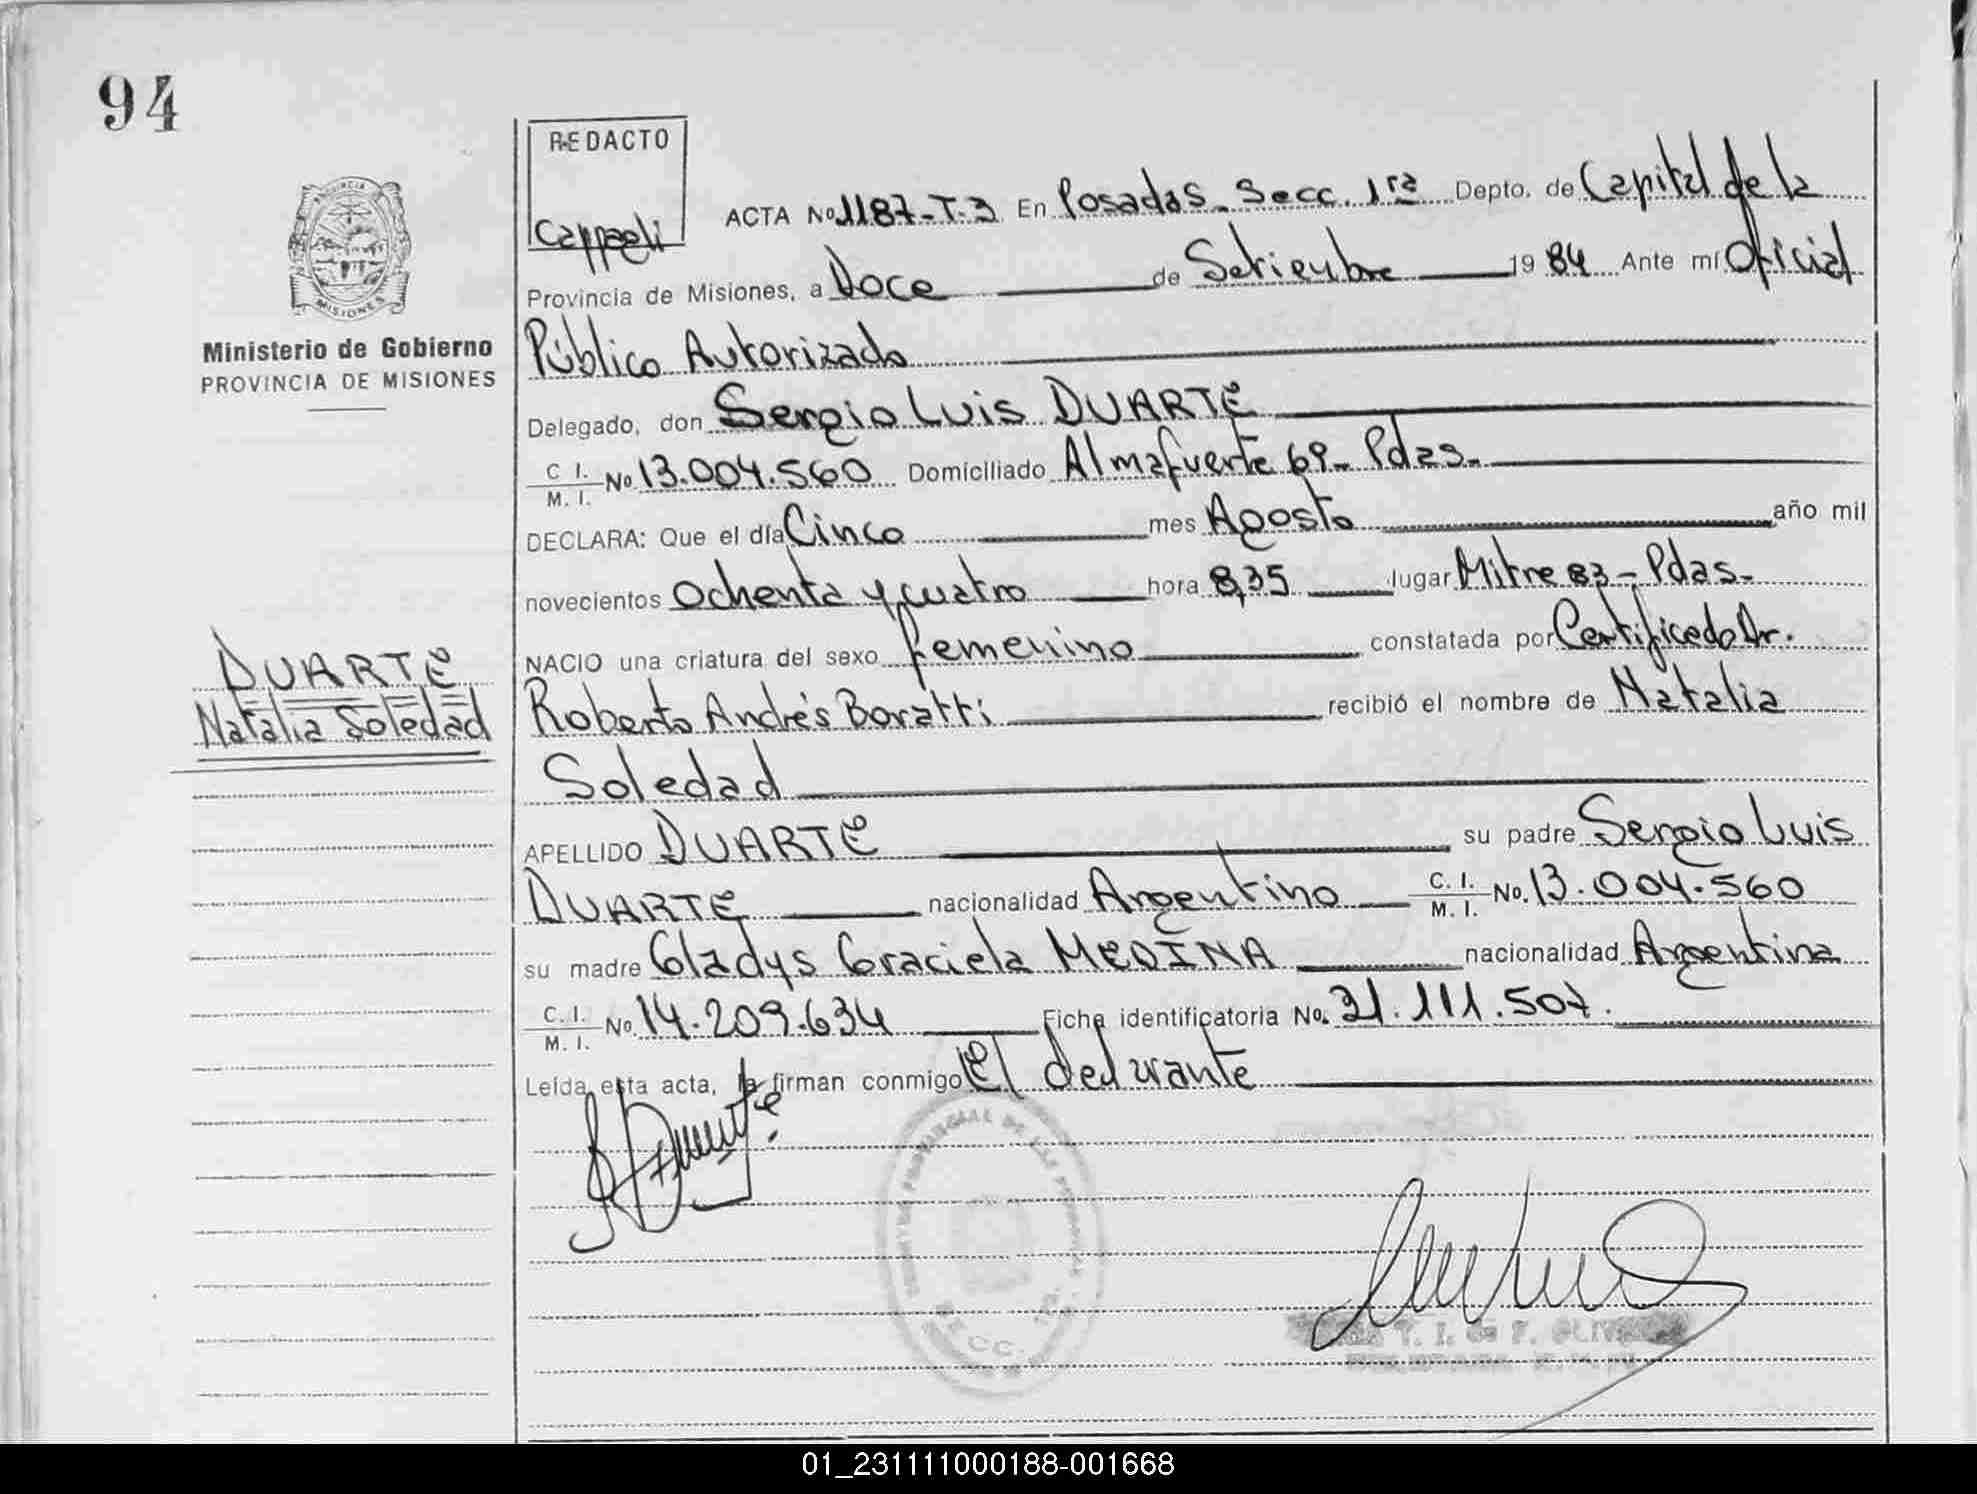 94
PROVINCIA
MISIONES
Ministerio de Gobierno
PROVINCIA DE MISIONES
DUARTE
Natalia Soledad
REDACTO
Cappaeli
ACTA No 1187-T.3 En Posadas. Secc. 1ra Depto. de Capital de la
Provincia de Misiones, a Doce de Setiembre 19 84 Ante mí Oficial
Público Autorizado
Delegado, don Sergio Luis DUARTE
C I. M. I. No. 13.004.560 Domiciliado Almafuerte 69- Pdas-
DECLARA: Que el día Cinco mes Agosto año mil
novecientos Ochenta y cuatro hora 8,35 lugar Mitre 83- Pdas-
NACIO una criatura del sexo femenino constatada por Certificado Dr.
Roberto Andrés Boratti recibió el nombre de Natalia
Soledad
APELLIDO DUARTE su padre Sergio Luis
DUARTE nacionalidad Argentino C. I. M. I. No. 13.004.560
su madre Gladys Graciela MEDINA nacionalidad Argentina
C. I. M. I. No. 14.209.634 Ficha identificatoria No. 31.111.507.
Leída esta acta, la firman conmigo El
SECC.
01_231111000188-001668